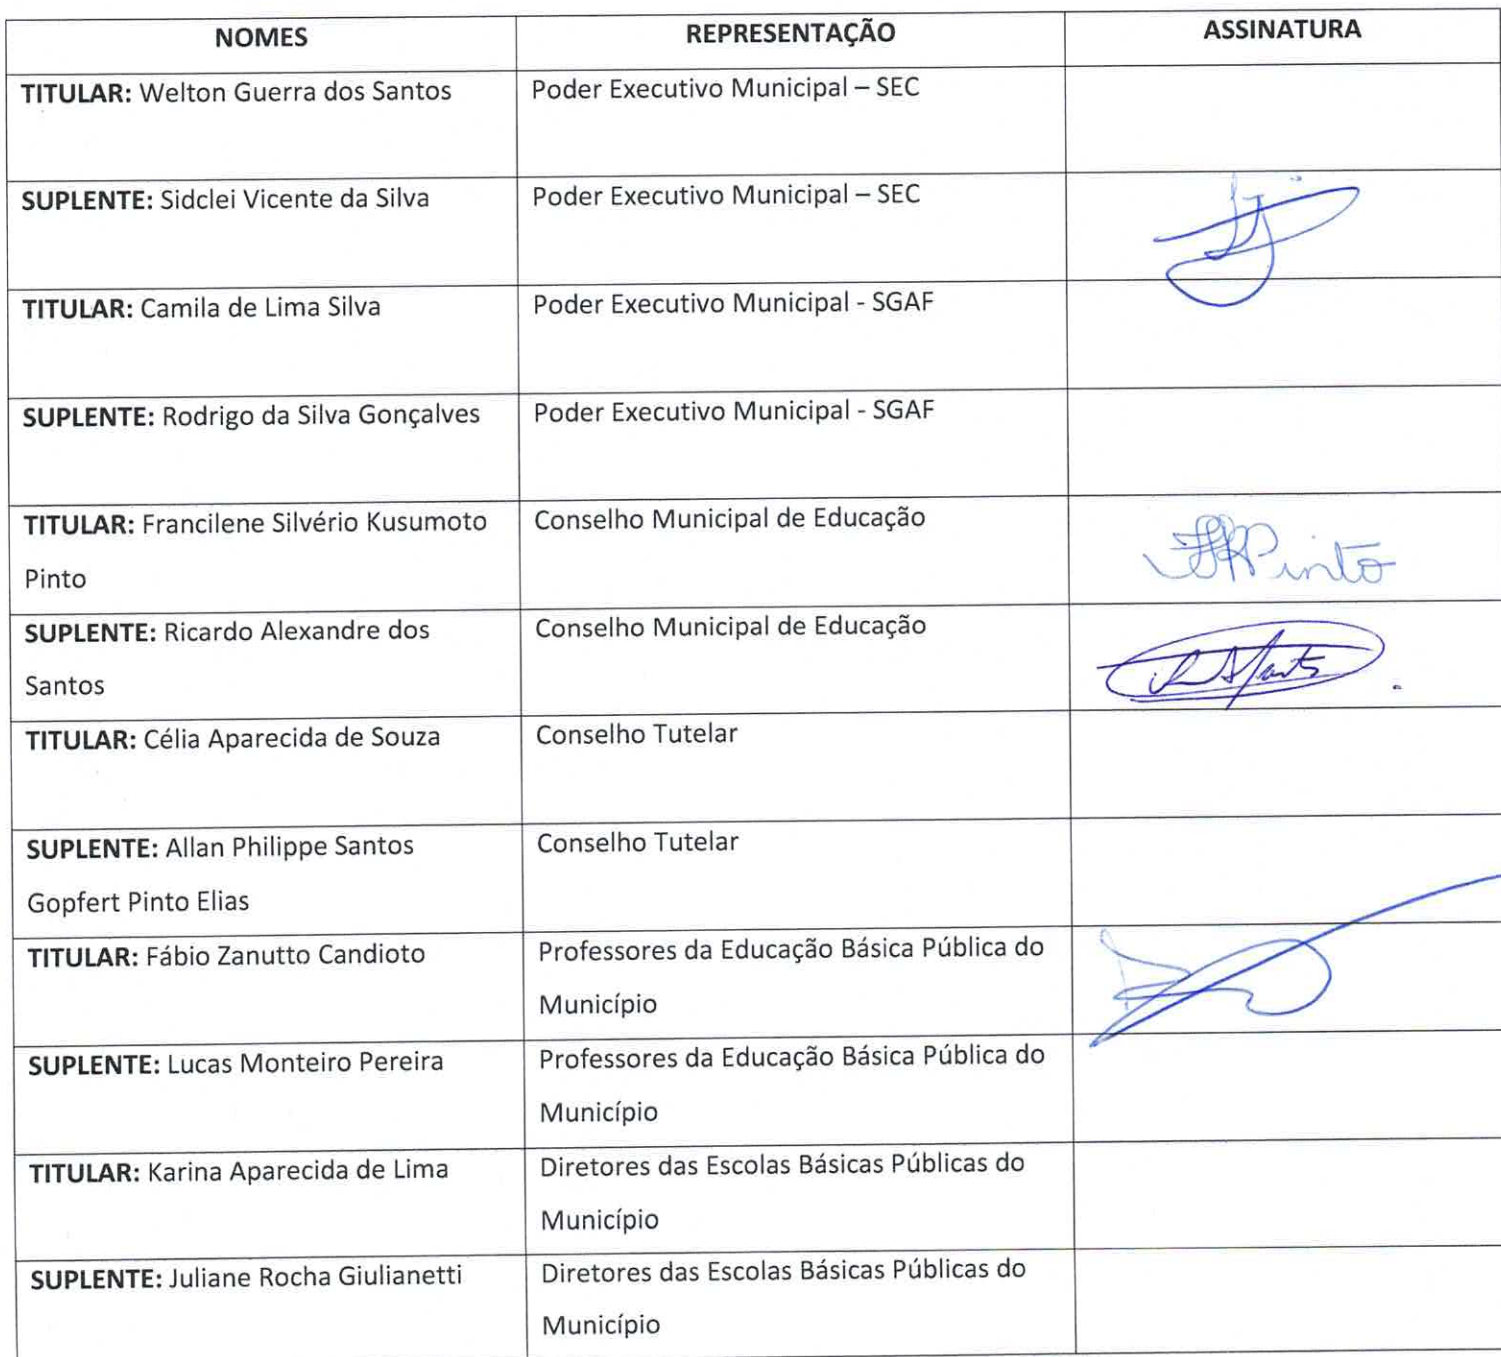 NOMES REPRESENTAÇÃO ASSINATURA
TITULAR: Welton Guerra dos Santos Poder Executivo Municipal – SEC
SUPLENTE: Sidclei Vicente da Silva Poder Executivo Municipal – SEC
TITULAR: Camila de Lima Silva Poder Executivo Municipal - SGAF
SUPLENTE: Rodrigo da Silva Gonçalves Poder Executivo Municipal - SGAF
TITULAR: Francilene Silvério Kusumoto Conselho Municipal de Educação
Pinto
Pinto
SUPLENTE: Ricardo Alexandre dos Conselho Municipal de Educação
Santos
TITULAR: Célia Aparecida de Souza Conselho Tutelar
SUPLENTE: Allan Philippe Santos Conselho Tutelar
Gopfert Pinto Elias
TITULAR: Fábio Zanutto Candioto Professores da Educação Básica Pública do
Município
SUPLENTE: Lucas Monteiro Pereira Professores da Educação Básica Pública do
Município
TITULAR: Karina Aparecida de Lima Diretores das Escolas Básicas Públicas do
Município
SUPLENTE: Juliane Rocha Giulianetti Diretores das Escolas Básicas Públicas do
Município